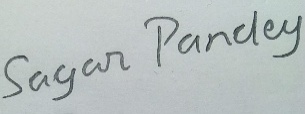 Sagar Pandey